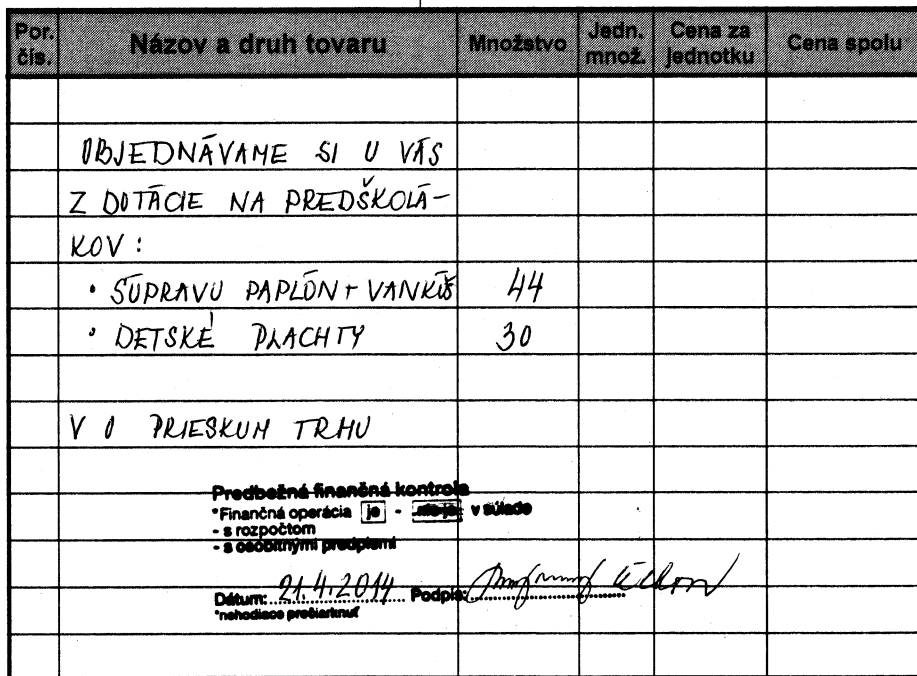 Por. čís. Názov a druh tovaru Množstvo Jedn. množ. Cena za jednotku Cena spolu
OBJEDNÁVAME SI U VÁS
Z DOTÁCIE NA PREDŠKOLÁ-
KOV :
• SÚPRAVU PAPLÓN + VANKÚŠ 44
• DETSKÉ PLACHTY 30
V O PRIESKUM TRHU
Predbežná finančná kontrola
*Finančná operácia je - nie je v súlade
- s rozpočtom
- s osobitnými predpismi
Dátum: 21.4.2014 Podpis:
*nehodiace prečiarknuť